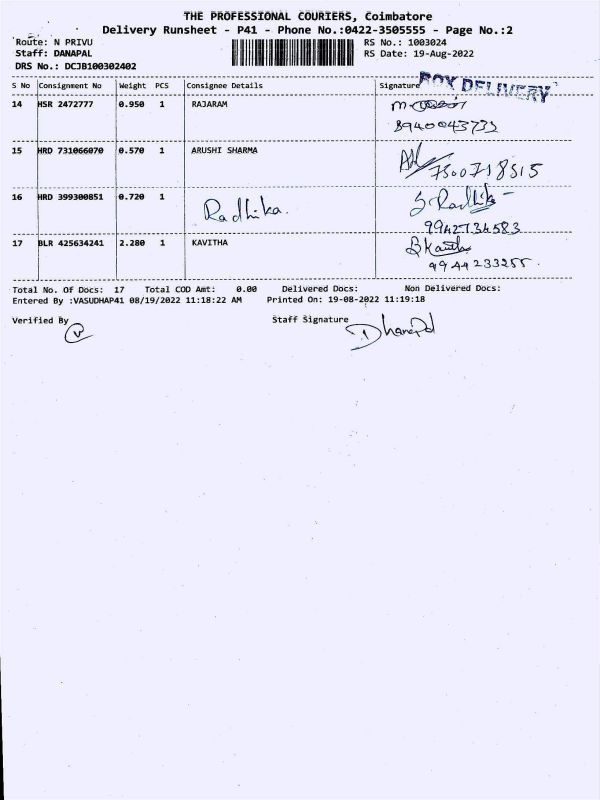 THE PROFESSIONAL COURIERS, Coimbatore
Delivery Runsheet - P41 - Phone No.:0422-3505555 - Page No.:2
Route: N PRIVU RS No.: 1003024
Staff: DANAPAL RS Date: 19-Aug-2022
DRS No.: DCJB100302402
S No Consignment No Weight PCS Consignee Details Signature
BOX DELIVERY
14 HSR 2472777 0.950 1 RAJARAM
8940043733
15 HRD 731066070 0.570 1 ARUSHI SHARMA
7500718515
16 HRD 399300851 0.720 1 Radhika. S. Radhika
9942734583
17 BLR 425634241 2.280 1 KAVITHA B Kavitha
9944233255.
Total No. Of Docs: 17 Total COD Amt: 0.00 Delivered Docs: Non Delivered Docs:
Entered By :VASUDHAP41 08/19/2022 11:18:22 AM Printed On: 19-08-2022 11:19:18
Verified By Staff Signature